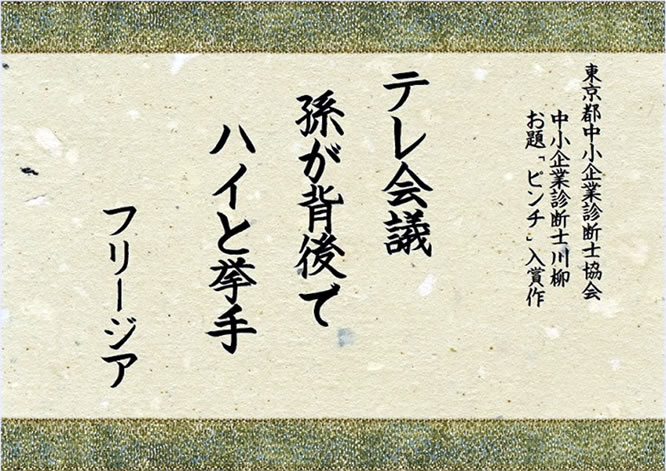 東京都中小企業診断士協会
中小企業診断士川柳
お題「ピンチ」入賞作
テレ会議
孫が背後で
ハイと挙手
フリージア